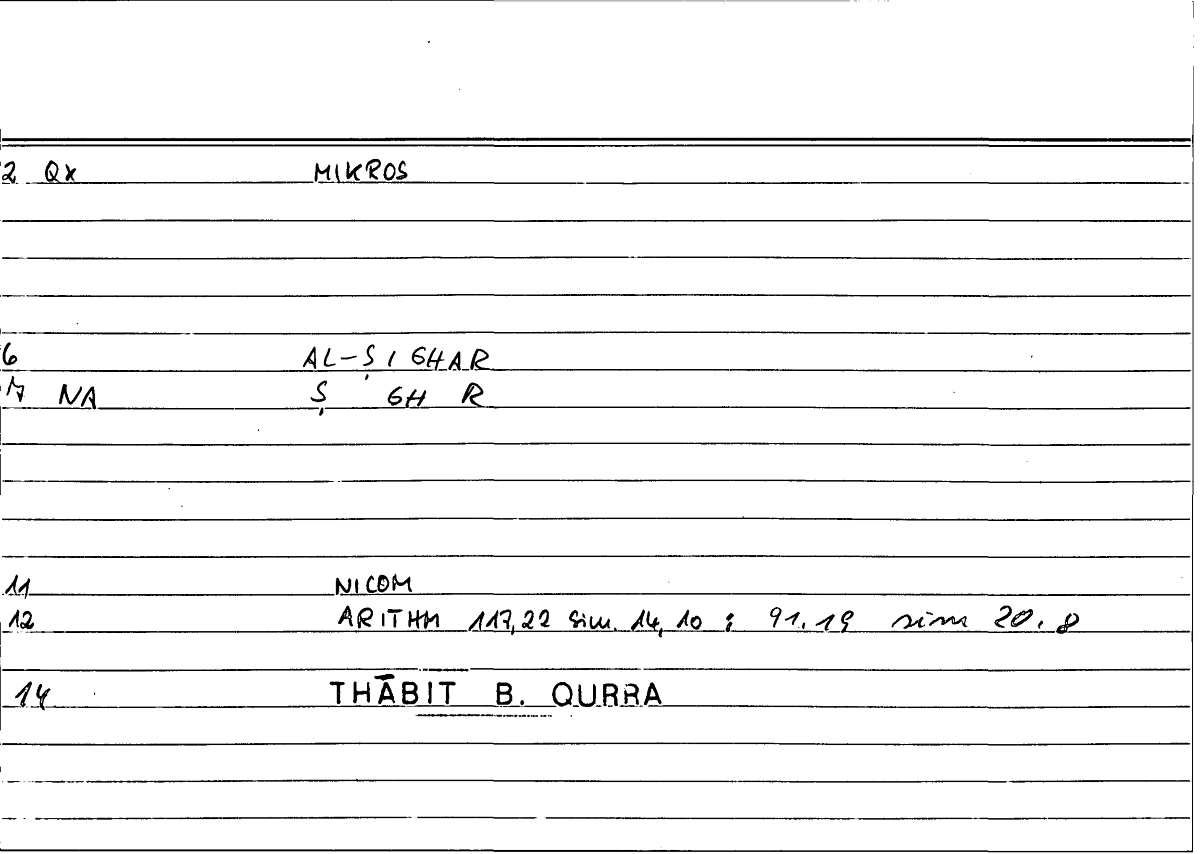 2 Qx MIKROS
6 AL-ṢIGHAR
7 NA Ṣ GH R
11 NICOM
12 ARITHM 117,22 sim. 14,10 ; 91.19 sim 20.8
14 THĀBIT B. QURRA